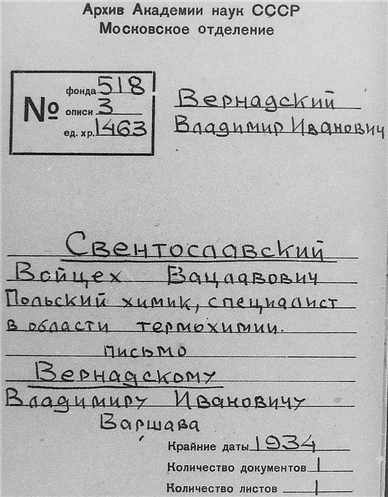 Архив Академии наук СССР
Московское отделение
№ фонда 518
описи 3
ед. хр. 1463
Вернадский
Владимир Иванович
Свентославский
Войцех Вацлавович
Польский химик, специалист
в области термохимии.
письмо
Вернадскому
Владимиру Ивановичу
Варшава
Крайние даты 1934
Количество документов 1
Количество листов 1